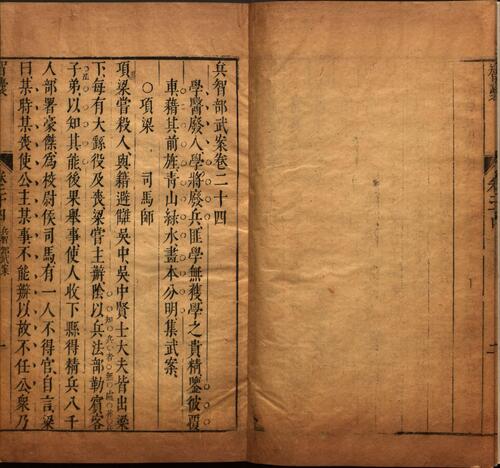 兵智部武案卷二十四
學醫廢人學將廢兵匪學無獲學之貴精鑒彼覆
車藉其前旌青山綠水畫本分明集武案
○項梁　司馬師
項梁嘗殺人與籍避讎吳中吳中賢士大夫皆出梁
下每有大繇役及喪梁嘗主辦陰以兵法部勒賓客
子弟以知其能後果舉事使人收下縣得精兵八千
人部署豪傑為校尉侯司馬有一人不得官自言梁
曰某時某喪使公主某事不能辦以故不任公衆乃
智囊　卷二十四　兵智部武案　一